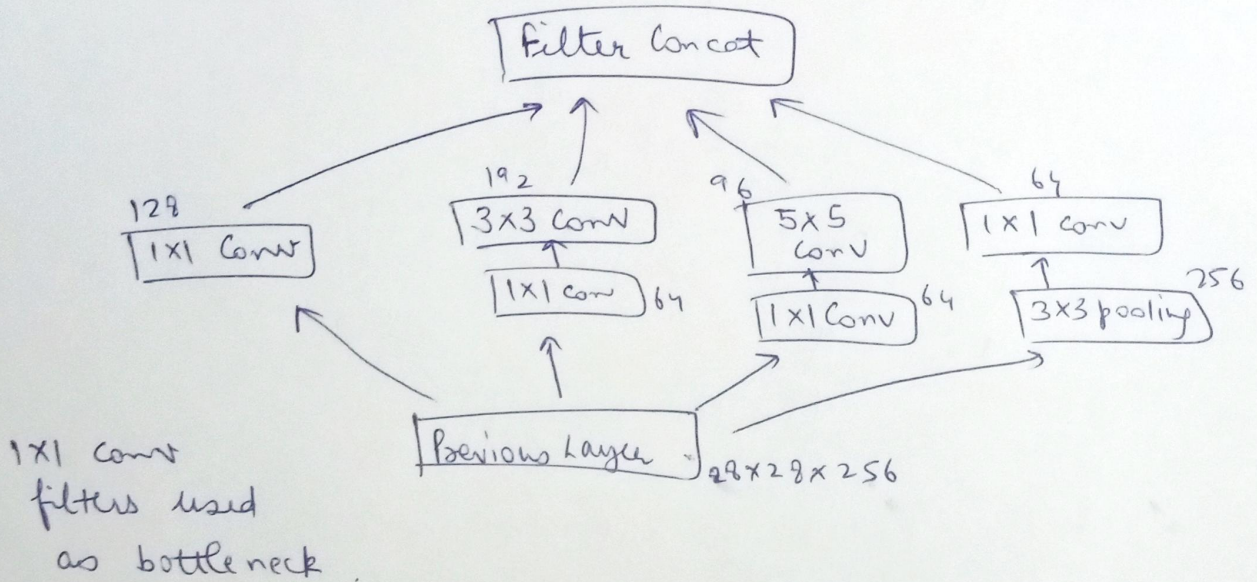 Filter Concat
128
1x1 Conv
192
3x3 Conv
1x1 Conv
64
96
5x5
Conv
1x1 Conv
64
64
1x1 Conv
3x3 pooling
256
Previous Layer
28x28x256
1x1 conv
filters used
as bottleneck.